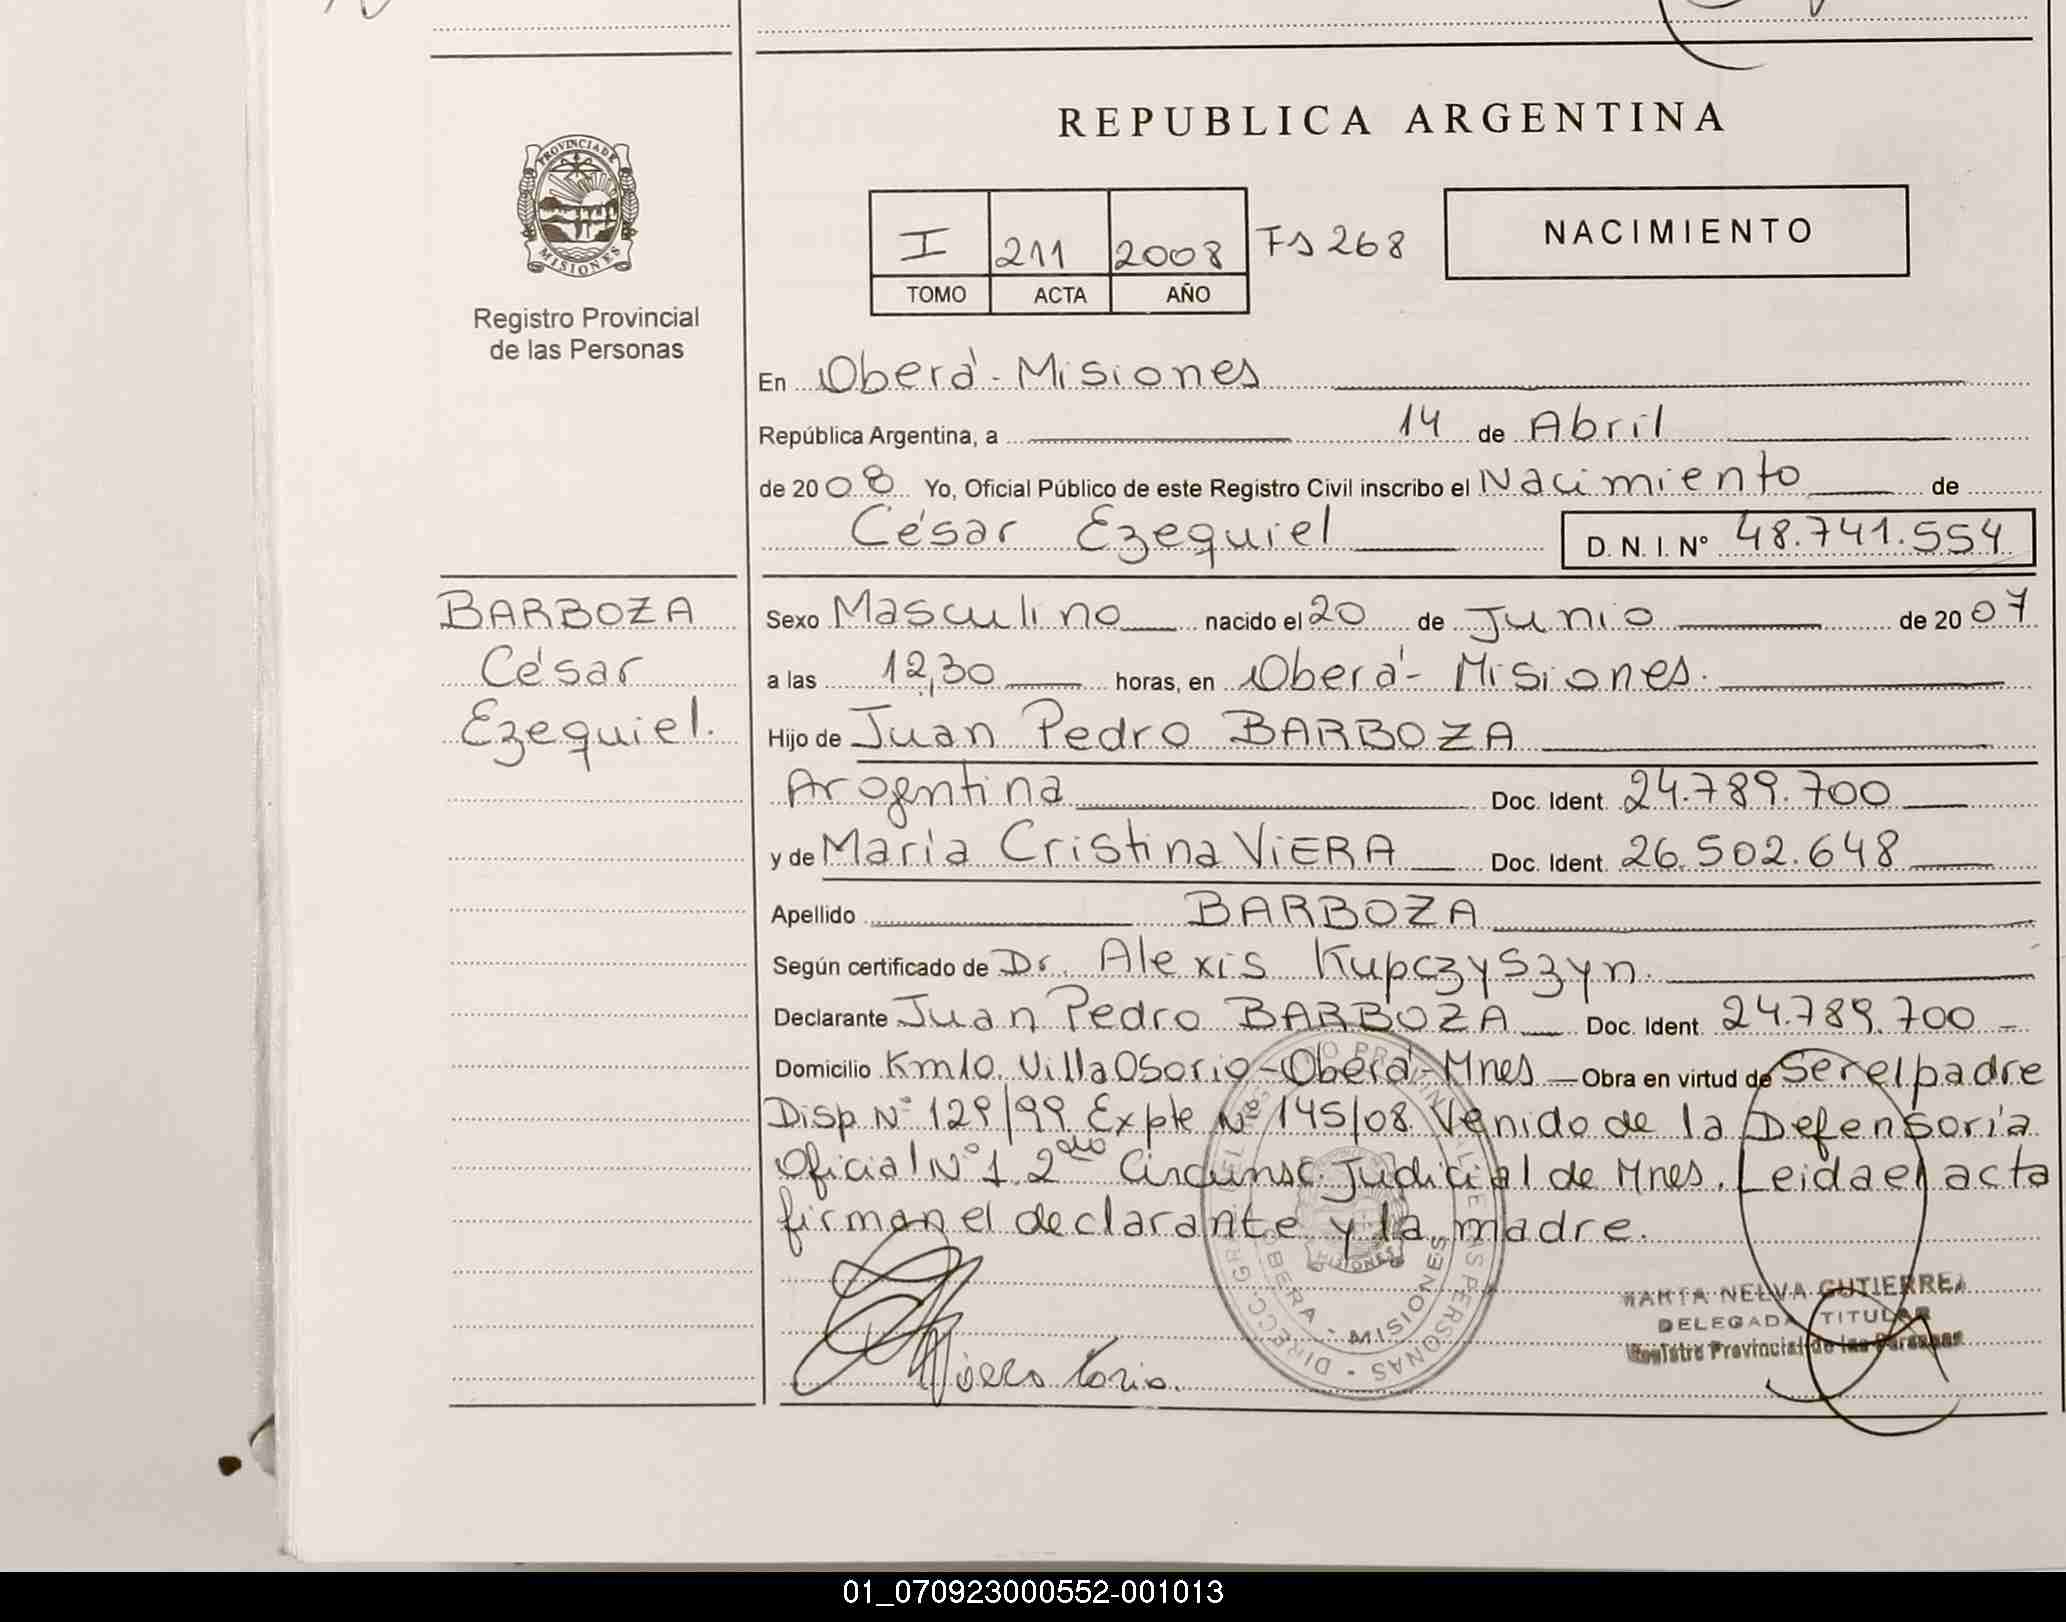 REPUBLICA ARGENTINA
PROVINCIA DE
MISIONES
Registro Provincial
de las Personas
I 211 2008 Fs 268
TOMO ACTA AÑO
NACIMIENTO
En Oberá - Misiones
República Argentina, a 14 de Abril
de 2008 Yo, Oficial Público de este Registro Civil inscribo el Nacimiento de
César Ezequiel D. N. I. N° 48.741.554
BARBOZA
César
Ezequiel.
Sexo Masculino nacido el 20 de Junio de 2007
a las 12,30 horas, en Oberá - Misiones.
Hijo de Juan Pedro BARBOZA
Argentina Doc. Ident. 24.789.700
y de María Cristina ViERA Doc. Ident. 26.502.648
Apellido BARBOZA
Según certificado de Dr. Alexis Kupczyszyn.
Declarante Juan Pedro BARBOZA Doc. Ident. 24.789.700
Domicilio Km10. Villa Osorio - Oberá - Mnes Obra en virtud de Ser el padre
Disp N° 129/99 Expte N° 145/08. Venido de la Defensoría
Oficial N° 1. 2da Circunsc. Judicial de Mnes. Leida el acta
firman el declarante y la madre.
OBERA - MISIONES
MISIONES
MARTA NELVA GUTIERREZ
DELEGADA TITULAR
Registro Provincial de las Personas
01_070923000552-001013